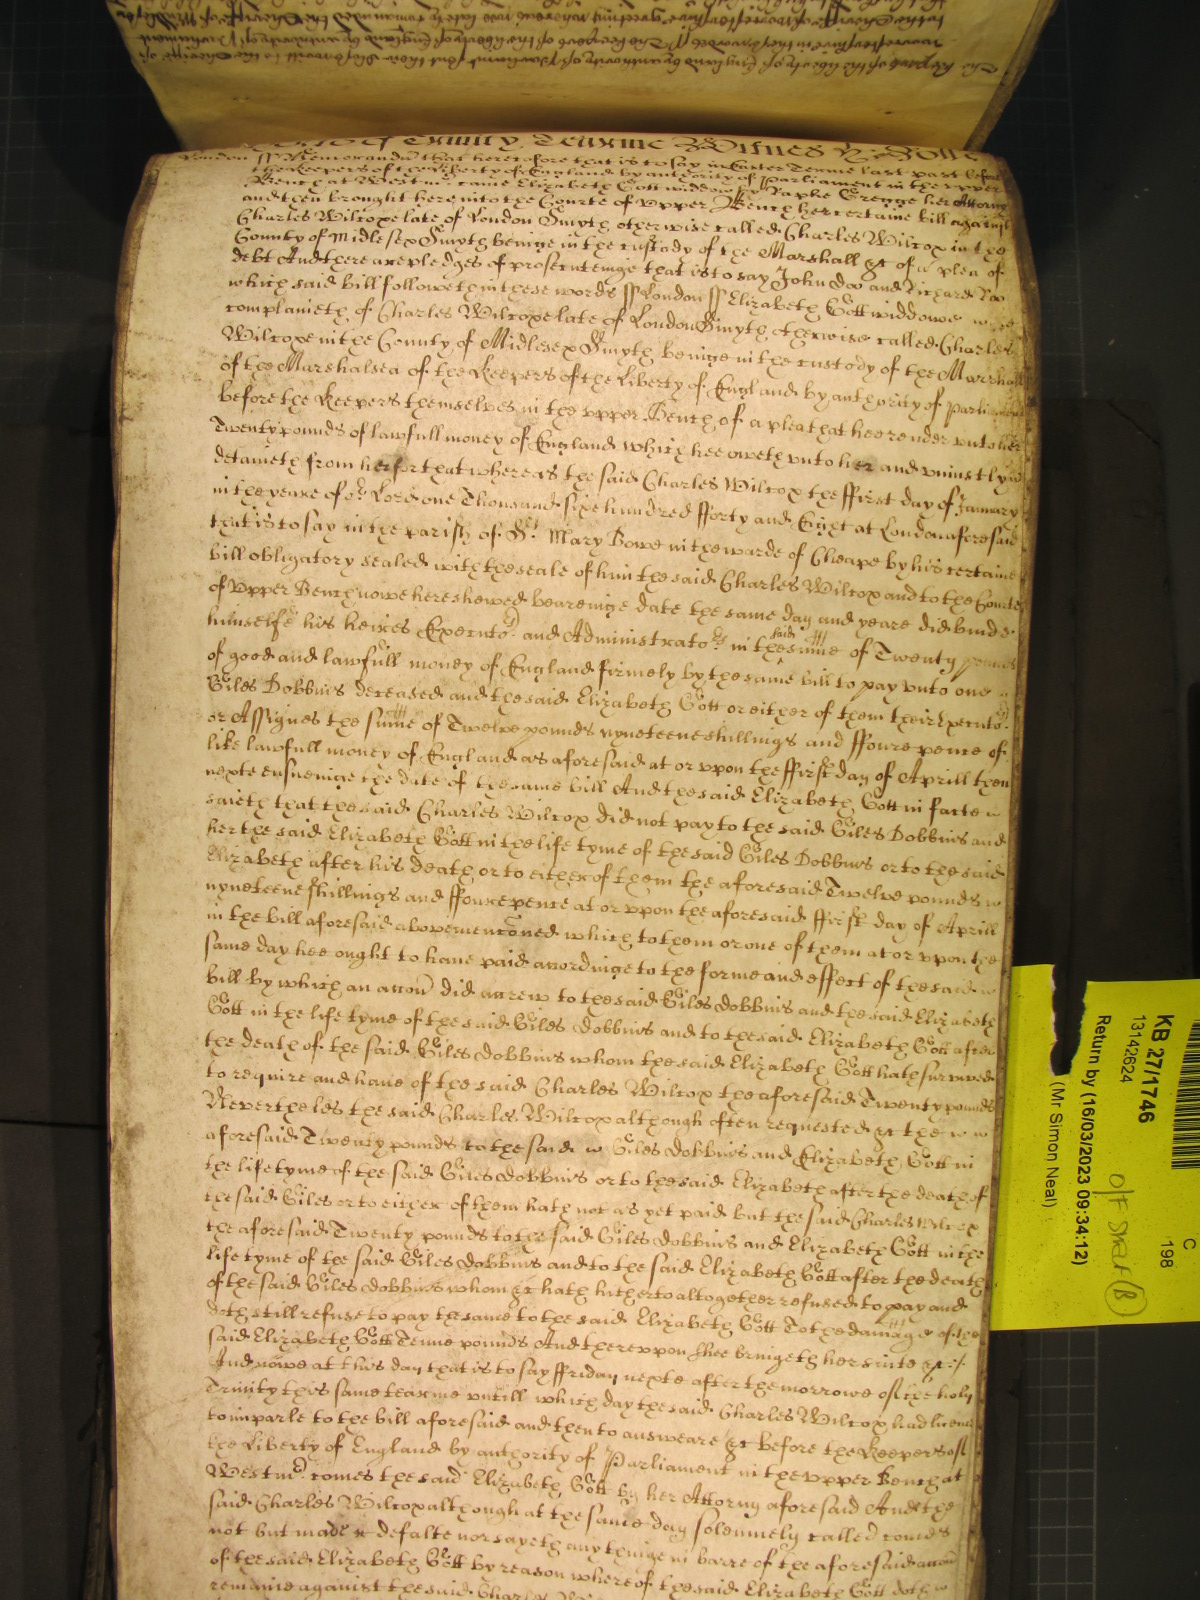 of Trinity Tearme Witnes H: Rolle
London ss Memorandu that heretofore that is to say in Easter Terme last past before
the Keepers of the Liberty of England by authority of Parliament in the vpper
Bench at Westmr came Elizabeth Gott widdow by Raphe Grenge her Attorny
and then brought here into the Courte of vpper Bench her certaine bill against
Charles Wilcoxe late of London Smyth otherwise called Charles Wilcox in the
County of Midlesex Smyth beinge in the custody of the Marshall &c of a plea of
debt And there are pledges of prosecuteinge that is to say John doo and Richard Roo
which said bill followeth in these words ss London ss Elizabeth Gott widdowe
complaineth of Charles Wilcoxe late of London Smyth otherwise called Charles
Wilcoxe in the County of Midlesex Smyth beinge in the custody of the Marshall
of the Marshalsea of the Keepers of the Liberty of England by authority of Parliament
before the Keepers themselves in the vpper Bench of a plea that hee render vnto her
Twenty pounds of lawfull money of England which hee oweth vnto her and vniustly
detaineth from her for that whereas the said Charles Wilcox the ffirst day of January
in the yeare of or Lord one Thousand sixe hundred fforty and Eight at London aforesaid
that is to say in the parish of St Mary Bowe in the warde of Cheape by his certaine
bill obligatory sealed with the seale of him the said Charles Wilcox and to the Courte
of vpper Bench nowe here shewed beareinge date the same day and yeare did binde
himselfe his heires Executors and Administrators in the said sume of Twenty pounds
of good and lawfull money of England firmely by the same bill to pay vnto one
Giles Dobbins deceased and the said Elizabeth Gott or either of them their Executors
or Assignes the sume of Twelve pounds nyneteene shillings and ffoure pence of
like lawfull money of England as aforesaid at or vpon the ffirst day of Aprill then
nexte ensueinge the date of the same bill And the said Elizabeth Gott in facte
saieth that the said Charles Wilcox did not pay to the said Giles Dobbins and
her the said Elizabeth Gott in the life tyme of the said Giles Dobbins or to the said
Elizabeth after his death or to either of them the aforesaid Twelve pounds
nyneteene shillings and ffoure pence at or vpon the aforesaid ffirst day of Aprill
in the bill aforesaid abovementioned which to them or one of them at or vpon the
same day hee ought to have paid accordinge to the forme and effect of the said
bill by which an accon did accrew to the said Giles dobbins and the said Elizabeth
Gott in the life tyme of the said Giles dobbins and to the said Elizabeth Gott after
the death of the said Giles dobbins whom the said Elizabeth Gott hath survived
to require and have of the said Charles Wilcox the aforesaid Twenty pounds
Neverthelés the said Charles Wilcox although often requested &c the
aforesaid Twenty pounds to the said Giles dobbins and Elizabeth Gott in
the life tyme of the said Giles dobbins or to the said Elizabeth after the death of
the said Giles or to either of them hath not as yet paid but the said Charles Wilcox
the aforesaid Twenty pounds to the said Giles dobbins and Elizabeth Gott in the
life tyme of the said Giles dobbins and to the said Elizabeth Gott after the death
of the said Giles dobbins whom &c hath hitherto altogether refused to pay and
doth still refuse to pay the same to the said Elizabeth Gott To the damage of the
said Elizabeth Gott Tenne pounds And therevpon shee bringeth her suite &c
And nowe at this day that is to say ffriday nexte after the morrowe of the holy
Trinity this same tearme vntill which day the said Charles Wilcox had licence
to imparle to the bill aforesaid and then to answeare &c before the Keepers of
the Liberty of England by authority of Parliament in the vpper Bench at
Westmr comes the said Elizabeth Gott by her Attorny aforesaid And the
said Charles Wilcox although at the same day solemnely called comes
not but made defalte nor sayeth any thinge in barre of the aforesaid accon
of the said Elizabeth Gott by reason whereof the said Elizabeth Gott doth
remaine against the said Charles
KB 27/1746
13142624
Return by (16/03/2023 09:34:12)
(Mr Simon Neal)
C
198